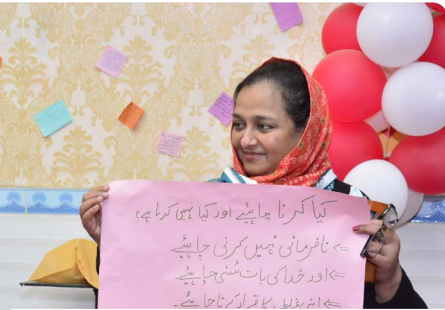 کیا کرنا چاہیئے اور کیا نہیں کرنا ہے؟
نافرمانی نہیں کرنی چاہیئے۔
اور خدا کی بات سُننی چاہیئے۔
اپنی غلطی کا اقرار کرنا چاہئے۔